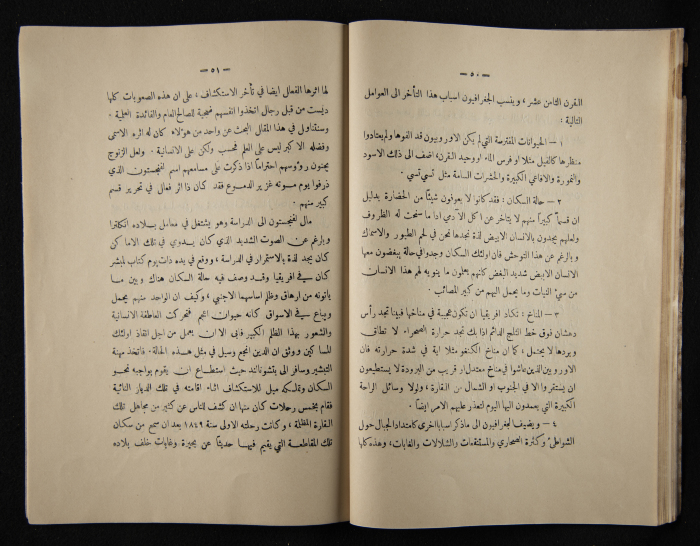 — ٥٠ —
القرن الثامن عشر ، وينسب الجغرافيون اسباب هذا التأخر الى العوامل
التالية :
١ — الحيوانات المفترسة التي لم يكن الاوروبيون قد الفوها ولم يعتادوا
منظرها كالفيل مثلا او فرس الماء او وحيد القرن، اضف الى ذلك الاسود
والنمورة والافاعي الكبيرة والحشرات السامة مثل تسي تسي .
٢ — حالة السكان : فقد كانوا لا يعرفون شيئاً من الحضارة بدليل
ان قسماً كبيراً منهم لا يتاخر عن اكل الآدمي اذا ما سنحت له الظروف
ولعلهم يجدون بالانسان الابيض لذة نجدها نحن في لحم الطيور والاسماك
وبالرغم عن هذا التوحش فان اولئك السكان وجدوا في حالة يبغضون معها
الانسان الابيض شديد البغض كانهم يعلمون ما ينويه لهم هذا الانسان
من سيئ النيات وما يحمل اليهم من كبير المصائب .
٣ — المناخ : تكاد افريقيا ان تكون عجيبة في مناخها فبينا تجد رأس
دهشان فوق خط الثلج الدائم اذا بك تجد حرارة الصحراء لا تطاق
وبردها لا يحتمل ، كما ان مناخ الكنغو مثلا اية في شدة حرارته فان
الاوروبيين الذين عاشوا في مناخ معتدل او قريب من البرودة لا يستطيعون
ان يستقروا الا في الجنوب او الشمال من القارة ، ولولا وسائل الراحة
الكبيرة التي يعمدون اليها اليوم لتعذر عليهم الامر ايضاً .
٤ — ويضيف الجغرافيون الى ما ذكر اسبابا اخرى كامتداد الجبال حول
الشواطئ وكثرة الصحاري والمستنقعات والشلالات والغابات ، وهذه كلها
— ٥١ —
لها اثرها الفعال ايضا في تأخر الاستكشاف ، على ان هذه الصعوبات كلها
ديست من قبل رجال اتخذوا انفسهم ضحية للصالح العام والفائدة العلمية .
وسنتناول في هذا المقال البحث عن واحد من هؤلاء كان له اثره الاسمى
وفضله الاكبر ليس على العلم فحسب ولكن على الانسانية . ولعل الزنوج
يحنون رؤوسهم احتراماً اذا ذكرت على مسامعهم اسم لفنجستون الذي
ذرفوا يوم موته غزير الدموع فقد كان ذا اثر فعال في تحرير قسم
كبير منهم .
مال لفنجستون الى الدراسة وهو يشتغل في معامل بلاده انكلترا
وبالرغم عن الصوت الشديد الذي كان يدوي في تلك الاماكن
كان يجد لذة بالاستمرار في الدراسة ، ووقع في يده ذات يوم كتاب لمبشر
كان في افريقيا وقد وصف فيه حالة السكان هناك وبين ما
يأتونه من ارهاق وظلم اسامهما الاجنبي ، وكيف ان الواحد منهم يحمل
ويباع في الاسواق كانه حيوان اعجم فتحركت العاطفة الانسانية
والشعور بهذا الظلم الكبير فابى الا ان يعمل من اجل انقاذ اولئك
المساكين ووثق ان الدين انجع وسيل في مثل هذه الحالة . فاتخذ مهنة
التبشير وسافر الى بتشوانالند حيث استطاع ان يقوم بواجبه نحو
السكان وتملكه ميل للاستكشاف اثناء اقامته في تلك الديار النائية
فقام بخمس رحلات كان منها ان كشف للناس عن كثير من مجاهل تلك
القارة المظلمة ، وكانت رحلته الاولى سنة ١٨٤٩ بعد ان سمع من سكان
تلك المقاطعة التي يقيم فيها حديثاً عن بحيرة وغابات خلف بلاده